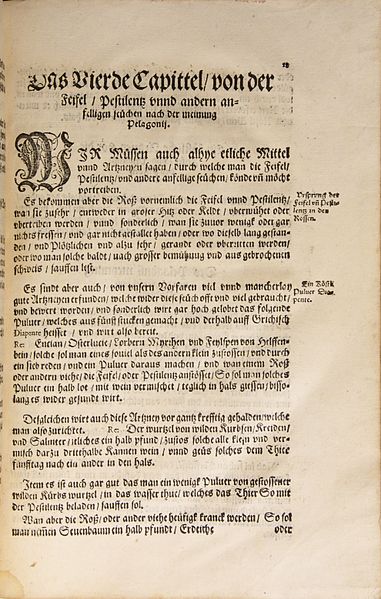 28
Das Vierde Capittel / von der
Feifel / Pestilentz vnnd andern an-
felligen seuchen nach der meinung
Pelagonij.
WIR Müssen auch alhye etliche Mittel
vnnd Artzneyen sagen / durch welche man die Feifel /
Pestilentz / vnd andere anfellige seuchen / könde vñ möcht
vortreiben.
Es bekommen aber die Roß vornemlich die Feifel vnnd Pestilentz /
wan sie zusehr / entweder in grosser Hitz oder Kelde / vbermühet oder
vbertrieben werden / vnnd sonderlich / wan sie zuuor wenig oder gar
nichts fressen / vnd gar nicht gestallet haben / oder wo dieselb lang gestan-
den / vnd Plötzlichen vnd alzu sehr / gerandt oder vberritten werden /
oder wo man solche baldt / nach grosser bemühung vnd aus gebrochenen
schweis / sauffen lest.
Vrsprung der
Feifel vñ Pesti-
lentz in den
Rossen.
Es sindt aber auch / von vnsern Vorfaren viel vnnd mancherley
gute Artzneyen erfunden / welche wider diese seuch offt vnd viel gebraucht /
vnd bewert worden / vnd sonderlich wirt gar hoch gelobet das folgende
Puluer / welches aus fünff stucken gemacht / vnd derhalb auff Grichisch
Diapente heisset / vnd wirt also bereit.
Ein Köstlich
Puluer Dia-
pente.
Re: Encian / Osterlucie / Lorbern Myrrhen vnd Feylspen von Helffen-
bein / solche sol man eines souiel als des andern klein zustossen / vnd durch
ein sieb reden / vnd ein Puluer daraus machen / vnd wan einem Roß
oder andern viehe / die Feifel / oder Pestilentz anstösset / So sol man solches
Puluer ein halb lot / mit wein vermischet / teglich in hals giessen / bisso-
lang es wider gesundt wirt.
Desgleichen wirt auch diese Artzney vor gantz krefftig gehalden / welche
man also zurichtet. Re: Der wurtzel von wilden Kürbsen / Kreyden /
vnd Salniter / itliches ein halb pfund / zustos solche alle klein vnd ver-
misch darzu dritthalbe Kannen wein / vnnd geüs solches dem Thire
fünfftag nach ein ander in den hals.
Item es ist auch gar gut das man ein wenigk Puluer von gestossener
wilden Kürbs wurtzel / in das wasser thut / welches das Thier So mit
der Pestilentz beladen / sauffen sol.
Wan aber die Roß / oder ander viehe heüfigk kranck werden / So sol
man nemen Seuenbaum ein halb pfundt / Erdeiche
oder